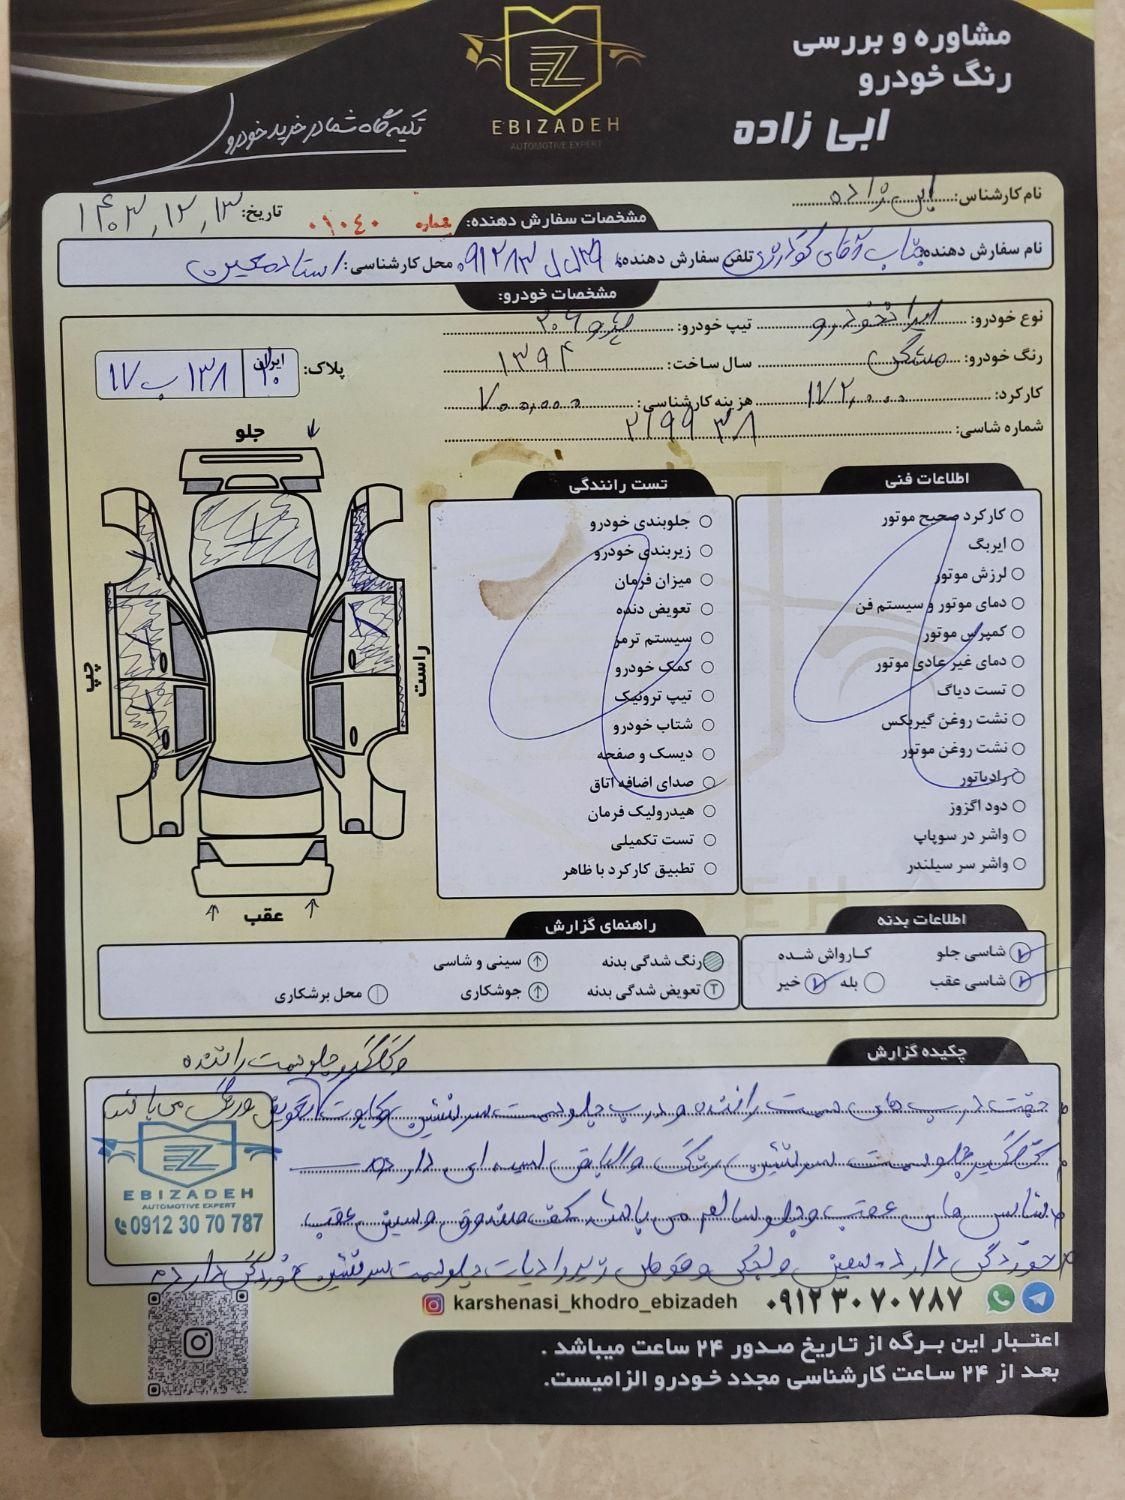 مشاوره و بررسی
رنگ خودرو
ابی زاده
EBIZADEH
AUTOMOTIVE EXPERT
تکیه گاه شما در خرید خودرو
نام کارشناس: ابی زاده
مشخصات سفارش دهنده:
شماره ۰۱۰۴۰
تاریخ: ۱۴۰۳,۱۲,۱۳
نام سفارش دهنده: جناب آقای گودرزی تلفن سفارش دهنده: محل کارشناسی: استاد معین
مشخصات خودرو:
نوع خودرو: ایرانخودرو تیپ خودرو: پژو ۲۰۶
رنگ خودرو: مشکی سال ساخت: ۱۳۹۴
پلاک: ایران ۱۰ ۱۳۸ ب ۱۷
کارکرد: ۱۷۲,۰۰۰ هزینه کارشناسی: ۷۰۰,۰۰۰
شماره شاسی: ۲۱۹۹۳۸
جلو
راست
چپ
عقب
تست رانندگی
جلوبندی خودرو
زیربندی خودرو
میزان فرمان
تعویض دنده
سیستم ترمز
کمک خودرو
تیپ ترونیک
شتاب خودرو
دیسک و صفحه
صدای اضافه اتاق
هیدرولیک فرمان
تست تکمیلی
تطبیق کارکرد با ظاهر
اطلاعات فنی
کارکرد صحیح موتور
ایربگ
لرزش موتور
دمای موتور و سیستم فن
کمپرس موتور
دمای غیر عادی موتور
تست دیاگ
نشت روغن گیربکس
نشت روغن موتور
رادیاتور
دود اگزوز
واشر در سوپاپ
واشر سر سیلندر
اطلاعات بدنه
شاسی جلو کارواش شده
شاسی عقب بله خیر
راهنمای گزارش
رنگ شدگی بدنه سینی و شاسی
تعویض شدگی بدنه جوشکاری محل برشکاری
چکیده گزارش
وگلگیر جلو سمت راننده
جفت درب های سمت راننده و درب جلو سمت سرنشین و کاپوت تعویض ورنگ می باشد
گلگیر جلو سمت سرنشین رنگ و الباقی لیسه ای دارد
شاسی های عقب و جلو سالم می باشد کف صندوق و سینی عقب
خوردگی دارد سینی جلو سمت سرنشین خوردگی دارد
EBIZADEH
AUTOMOTIVE EXPERT
0912 30 70 787
karshenasi_khodro_ebizadeh
۰۹۱۲ ۳۰ ۷۰ ۷۸۷
اعتبار این برگه از تاریخ صدور ۲۴ ساعت میباشد .
بعد از ۲۴ ساعت کارشناسی مجدد خودرو الزامیست.